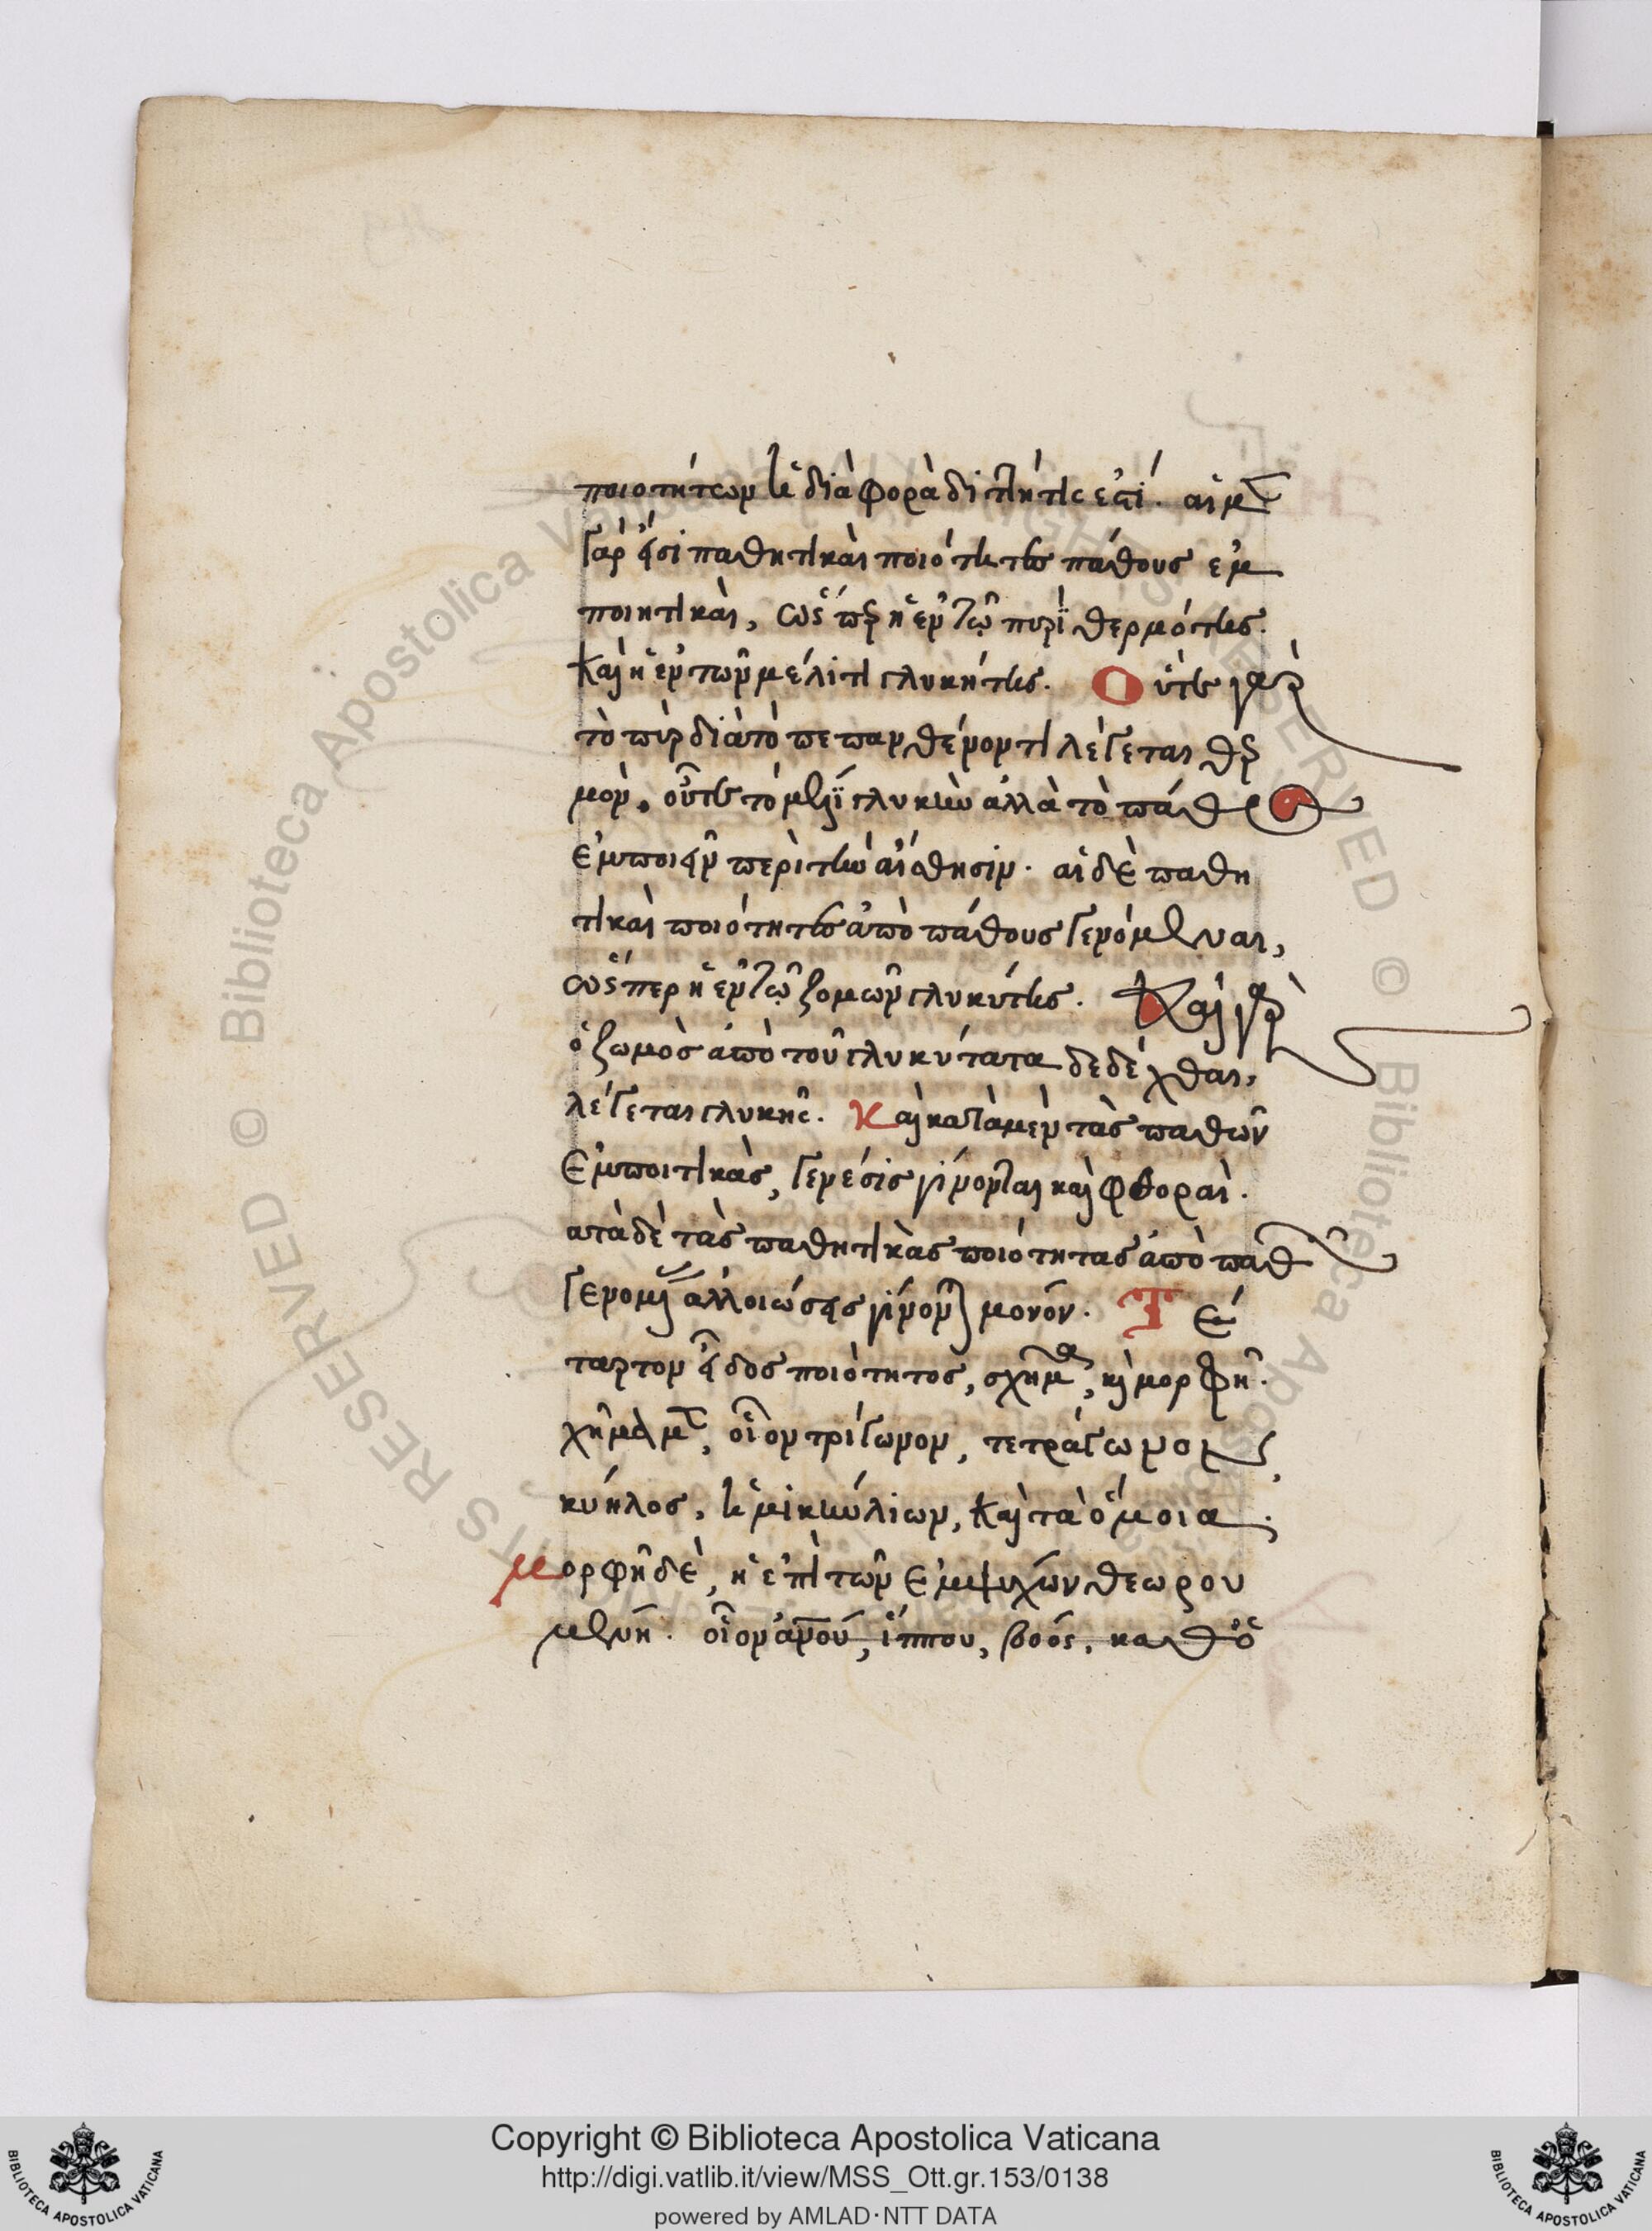 ποιοτήτων ἡ διὰφορὰ διττήτις ἐστί. αἱ μὲν
γὰρ εἰσὶ παθητικαὶ ποιότητες πάθους ἐμ
ποιητικαὶ, ὥσπερ ἡ ἐν τῷ πυρῒ θερμότης.
καὶ ἡ ἐν τῶν μέλιτι γλυκήτης. Οὔτε γὰρ
τὸ πῦρ διὰ τὸ πεπανθέμον τὶ λέγεται θερ
μὸν, οὔτε τὸ μέλϊ γλυκὺ ἀλλὰ τὸ πάθος
ἐμποιεῖν περὶ τὴν αἴσθησιν. αἱ δὲ παθη
τικαὶ ποιότητες ἀπὸ πάθους γενόμεναι,
ὥσπερ ἡ ἐν τῷ ζομῶν γλυκύτης. Καὶ γὰρ
ὁ ζωμὸς ἀπὸ τοῦ γλυκύτατα δεδέχθαι,
λέγεται γλυκῆς. Καὶ κατὰ μὲν τὰς παθῶν
ἐμποιτικὰς, γενέσις γίνονται καὶ φθοραὶ.
ατὰ δὲ τὰς παθητικὰς ποιότητας ἀπὸ παθ
γενομένας ἀλλοιώσεις γίνονται μονόν. Τέ
ταρτον εἶδος ποιὸτητος, σχῆμα, καὶ μορφῆ.
χῆμα μὲν, οἷον τρίγωνον, τετράγωνον,
κύηλος, ἡμικύλιων, καὶ τὰ ὅμοια.
μορφῆ δὲ, ἡ ἐπὶ τῶν ἐμψυχών θεωρου
μένη. οἷον ἀνοῦ, ἵππου, βοός, καθὸ
Copyright © Biblioteca Apostolica Vaticana
http://digi.vatlib.it/view/MSS_Ott.gr.153/0138
powered by AMLAD·NTT DATA